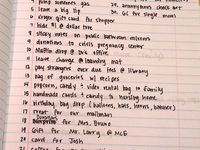 4 fund summers gas
5 leave a big tip
6 kroger gift card for shopper
7 hide $1 @ dollar tree
8 sticky notes on public bathroom mirrors
9 donations to crisis pregnancy center
10 muffin drop @ Dr. office
11 leave change @ laundry mat
12 pay strangers over due fees @ library
13 bag of groceries w/ recipes
14 popcorn, candy & video rental bag to family
15 handmade cards & candy to nursing home
16 birthday bag drop (balloons, hats, horns, banner)
17 treat for our mailman
18 Donation for Mrs. Bruno
19 Gift for Mr. Larry @ MCE
20 card for Josh
21 coffee
29. anonymous check
30. GC for single mom